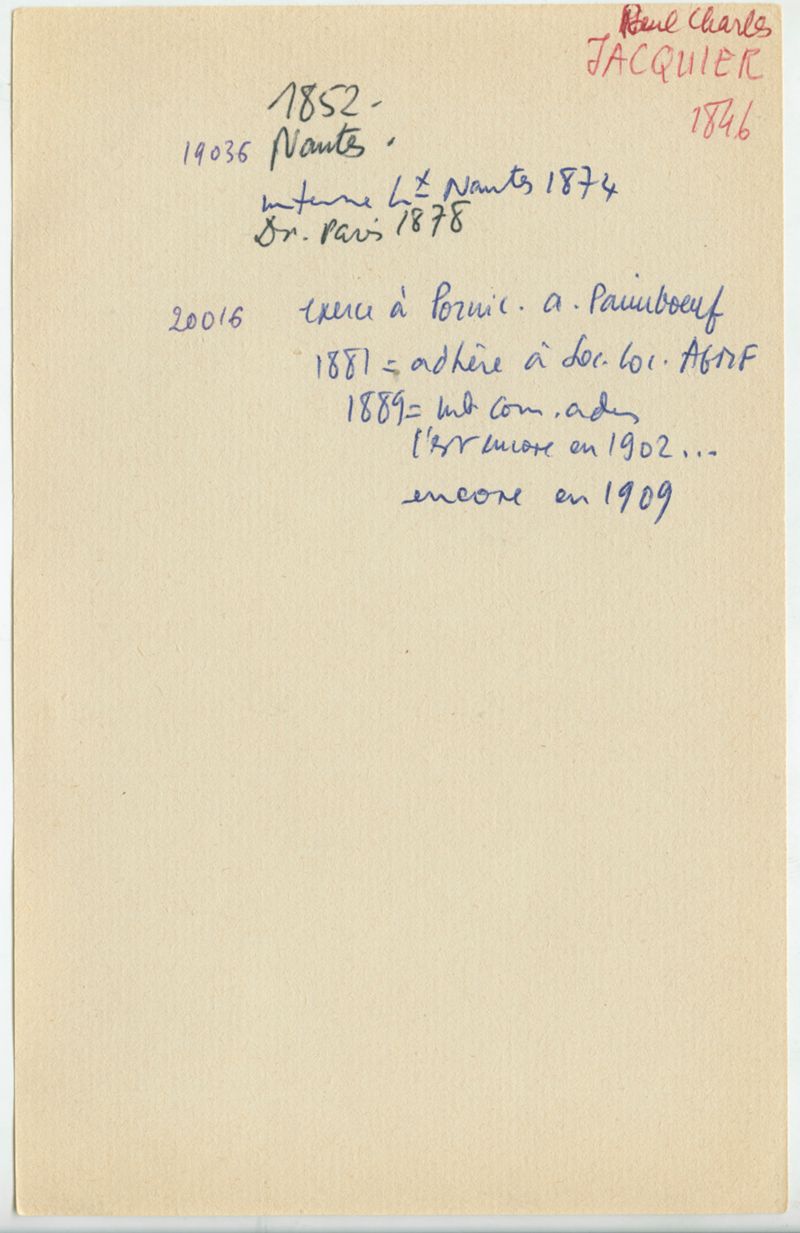 Paul Charles
JACQUIER
1846
1852.
19036 Nantes.
interne Hx Nantes 1874
Dr. Paris 1878
20016 exerce à Pornic. a. Paimboeuf
1881 = adhère à Soc. Loc. AGMF
1889 = mb com. adm
l'est encore en 1902...
encore en 1909